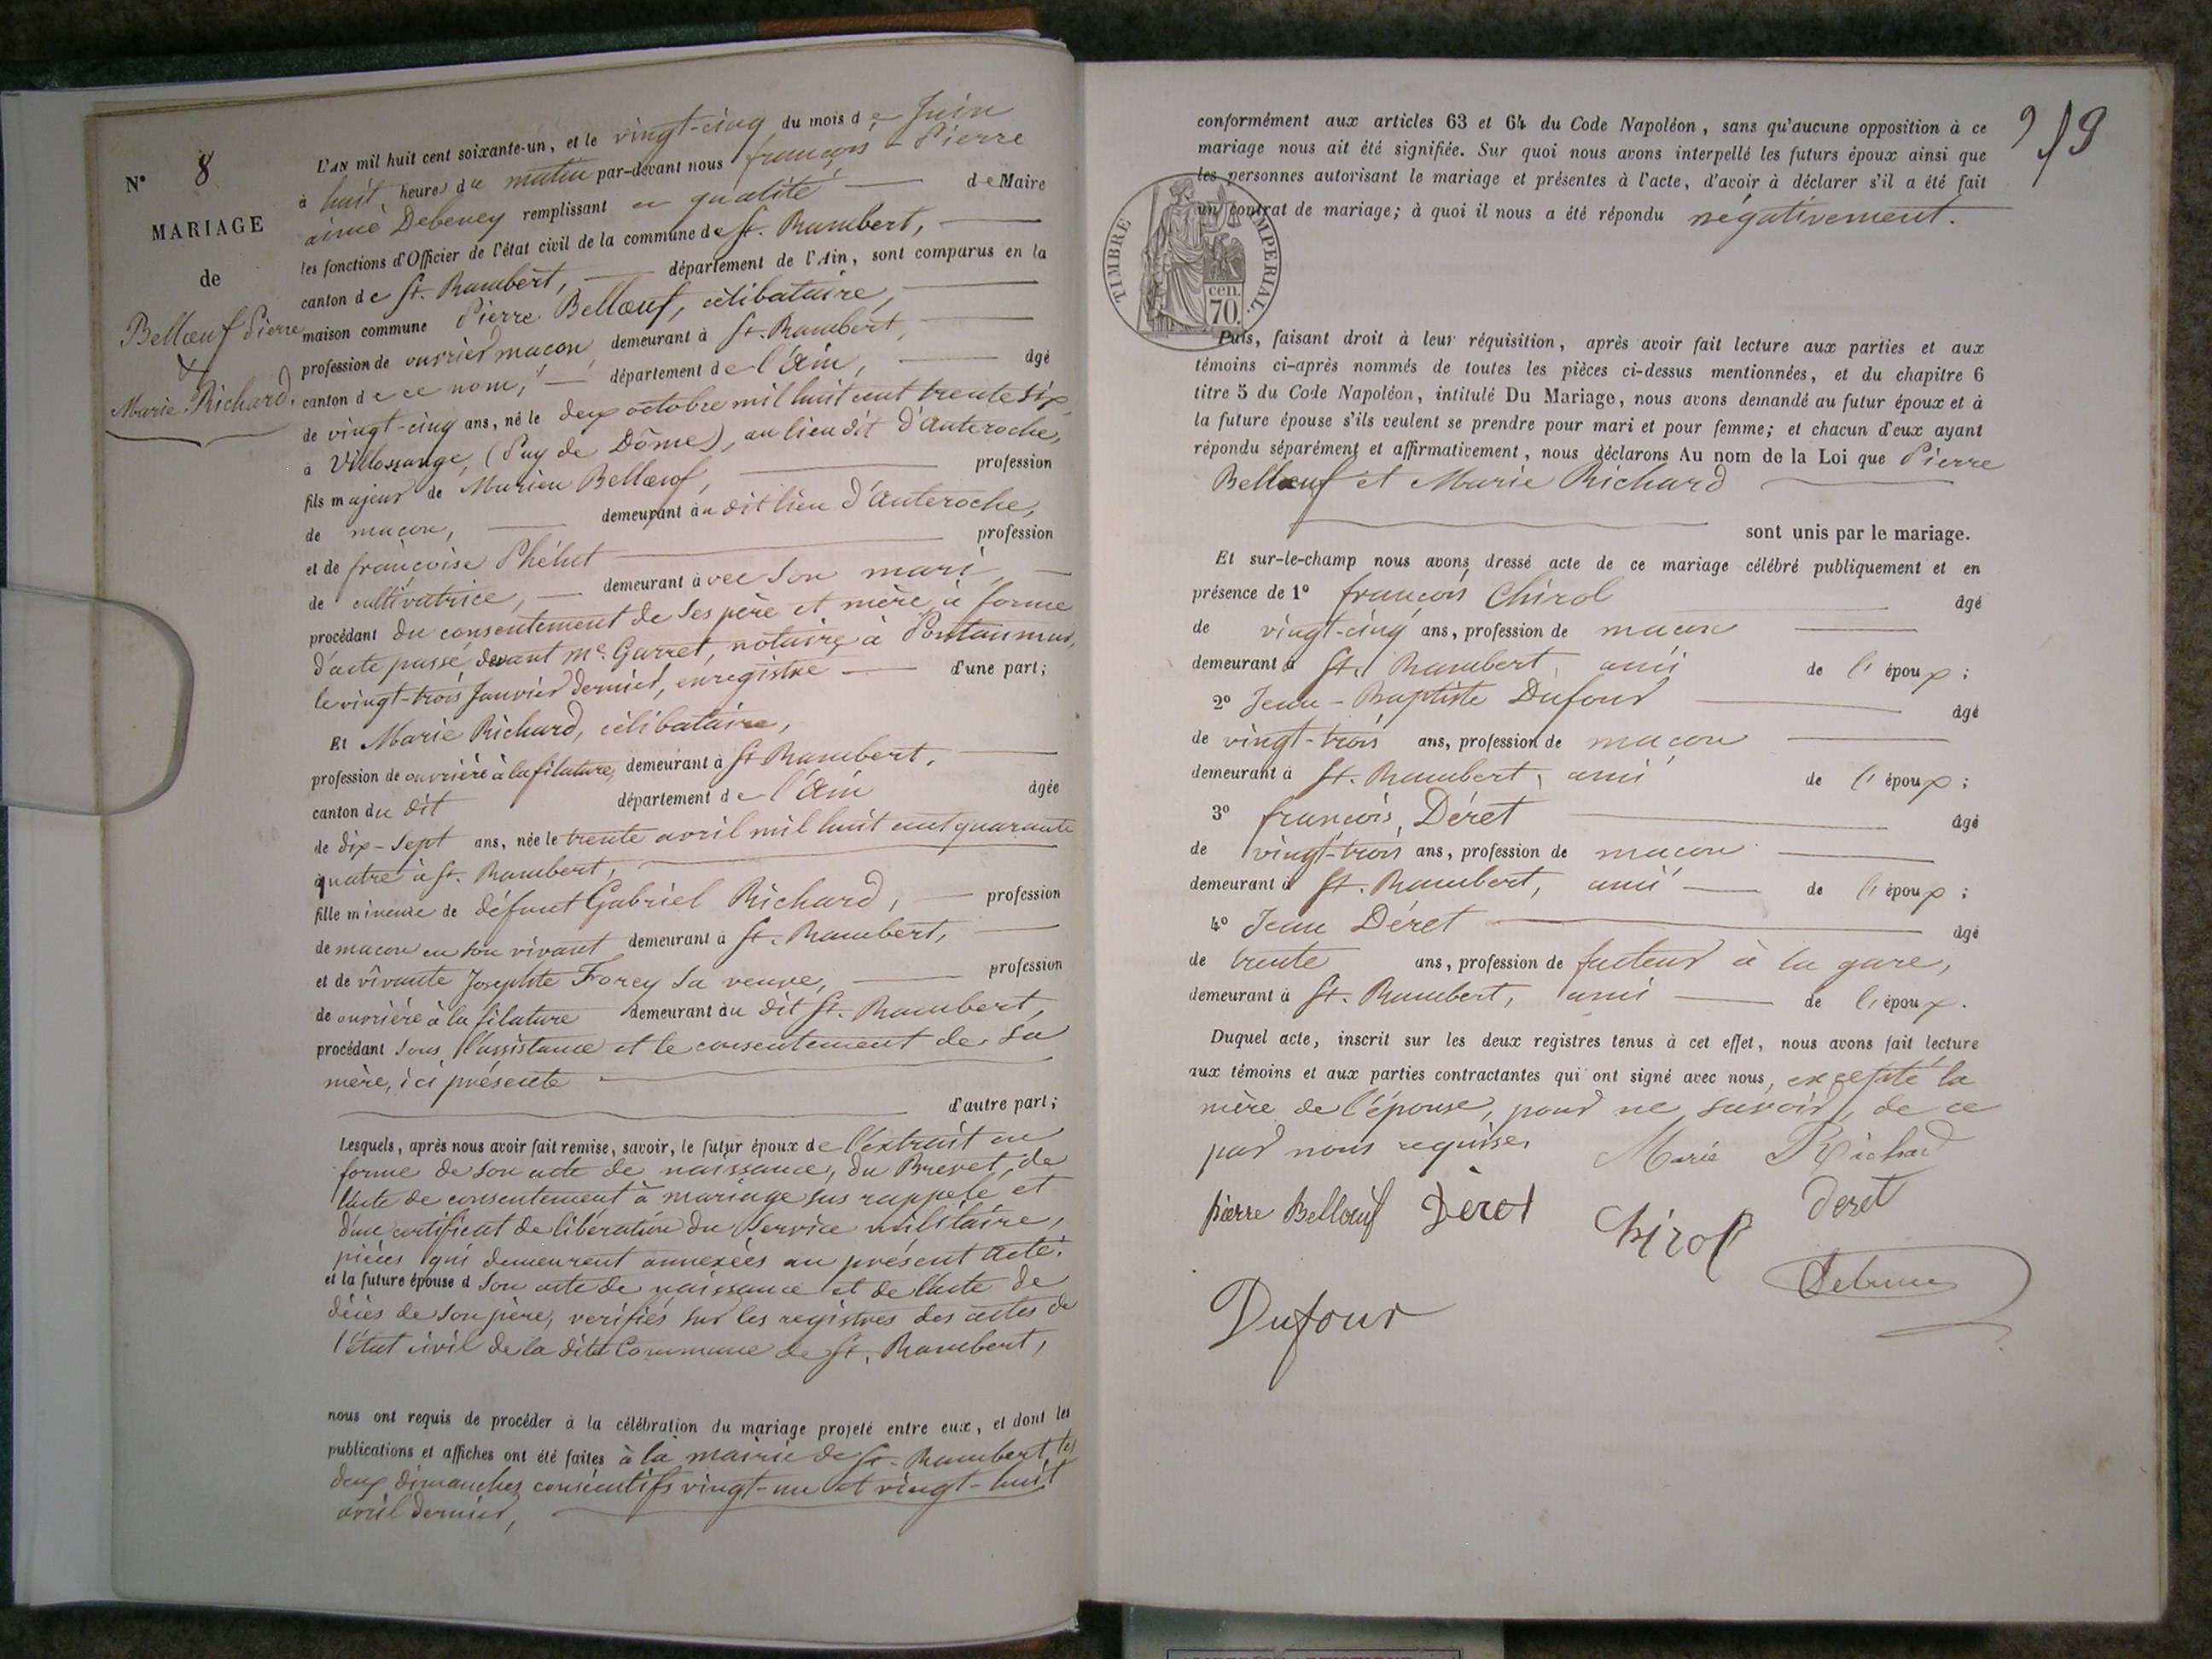 N° 8
MARIAGE
de
Bellœuf Pierre
&
Marie Richard.
L'AN mil huit cent soixante-un, et le vingt-cinq du mois de Juin
à huit heures du matin par-devant nous françois-Pierre
aimé Debeney remplissant en qualité de Maire
les fonctions d'Officier de l'état civil de la commune de St. Rambert,
canton de St. Rambert, département de l'Ain, sont comparus en la
maison commune Pierre Bellœuf, célibataire,
profession de ouvrier maçon, demeurant à St. Rambert,
canton de ce nom, département de l'Ain, âgé
de vingt-cinq ans, né le deux octobre mil huit cent trente six
à Villossange, (Puy de Dôme), au lieu dit d'Anteroche,
fils majeur de Marien Bellœuf, profession
de maçon, demeurant au dit lieu d'Anteroche,
et de françoise Phélut profession
de cultivatrice, demeurant avec son mari,
procédant du consentement de ses père et mère, à forme
d'acte passé devant Me. Garret, notaire à Pontaumur,
le vingt-trois Janvier dernier, enregistré d'une part;
Et Marie Richard, célibataire,
profession de ouvrière à la filature, demeurant à St Rambert,
canton du dit département de l'Ain âgée
de dix-sept ans, née le trente avril mil huit cent quarante
quatre à St. Rambert,
fille mineure de défunt Gabriel Richard, profession
de maçon en son vivant demeurant à St. Rambert,
et de vivante Josephte Forey sa veuve, profession
de ouvrière à la filature demeurant au dit St. Rambert,
procédant sous l'assistance et le consentement de sa
mère, ici présente
d'autre part;
Lesquels, après nous avoir fait remise, savoir, le futur époux de l'extrait en
forme de son acte de naissance, du Brevet de
l'acte de consentement à mariage sus rappelé et
d'un certificat de libération du service militaire,
pièces qui demeurent annexées au présent acte.
et la future épouse d son acte de naissance et de l'acte de
décès de son père, verifiés sur les registres des actes de
l'état civil de la dite Commune de St. Rambert,
nous ont requis de procéder à la célébration du mariage projeté entre eux, et dont les
publications et affiches ont été faites à la mairie de St. Rambert, les
deux dimanches consécutifs vingt-un et vingt-huit
avril dernier,
9
conformément aux articles 63 et 64 du Code Napoléon, sans qu'aucune opposition à ce
mariage nous ait été signifiée. Sur quoi nous avons interpellé les futurs époux ainsi que
les personnes autorisant le mariage et présentes à l'acte, d'avoir à déclarer s'il a été fait
un contrat de mariage; à quoi il nous a été répondu négativement.
TIMBRE IMPERIAL
cen.
70.
Puis, faisant droit à leur réquisition, après avoir fait lecture aux parties et aux
témoins ci-après nommés de toutes les pièces ci-dessus mentionnées, et du chapitre 6
titre 5 du Code Napoléon, intitulé Du Mariage, nous avons demandé au futur époux et à
la future épouse s'ils veulent se prendre pour mari et pour femme; et chacun d'eux ayant
répondu séparément et affirmativement, nous déclarons Au nom de la Loi que Pierre
Bellœuf et Marie Richard
sont unis par le mariage.
Et sur-le-champ nous avons dressé acte de ce mariage célébré publiquement et en
présence de 1° françois Chirol âgé
de vingt-cinq ans, profession de maçon
demeurant à St. Rambert, ami de l'époux;
2° Jean-Baptiste Dufour âgé
de vingt-trois ans, profession de maçon
demeurant à St. Rambert, ami de l'époux;
3° françois Déret âgé
de vingt-trois ans, profession de maçon
demeurant à St. Rambert, ami de l'époux;
4° Jean Déret âgé
de trente ans, profession de facteur à la gare,
demeurant à St. Rambert, ami de l'époux.
Duquel acte, inscrit sur les deux registres tenus à cet effet, nous avons fait lecture
aux témoins et aux parties contractantes qui ont signé avec nous, excepté la
mère de l'épouse, pour ne savoir, de ce
par nous requise.
Marie Richard
pierre Bellœuf Déret
Chirol
deret
Dufour